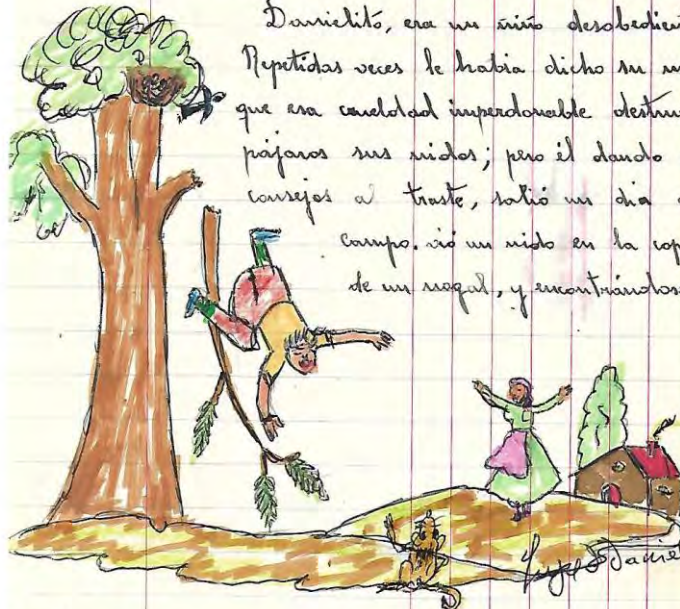 Danielito, era un niño desobedien
Repetidas veces le habia dicho su m
que era crueldad imperdonable destru
pájaros sus nidos; pero él dando
consejos al traste, salió un dia
campo. vió un nido en la cop
de un nogal, y encontrándos
Daniel